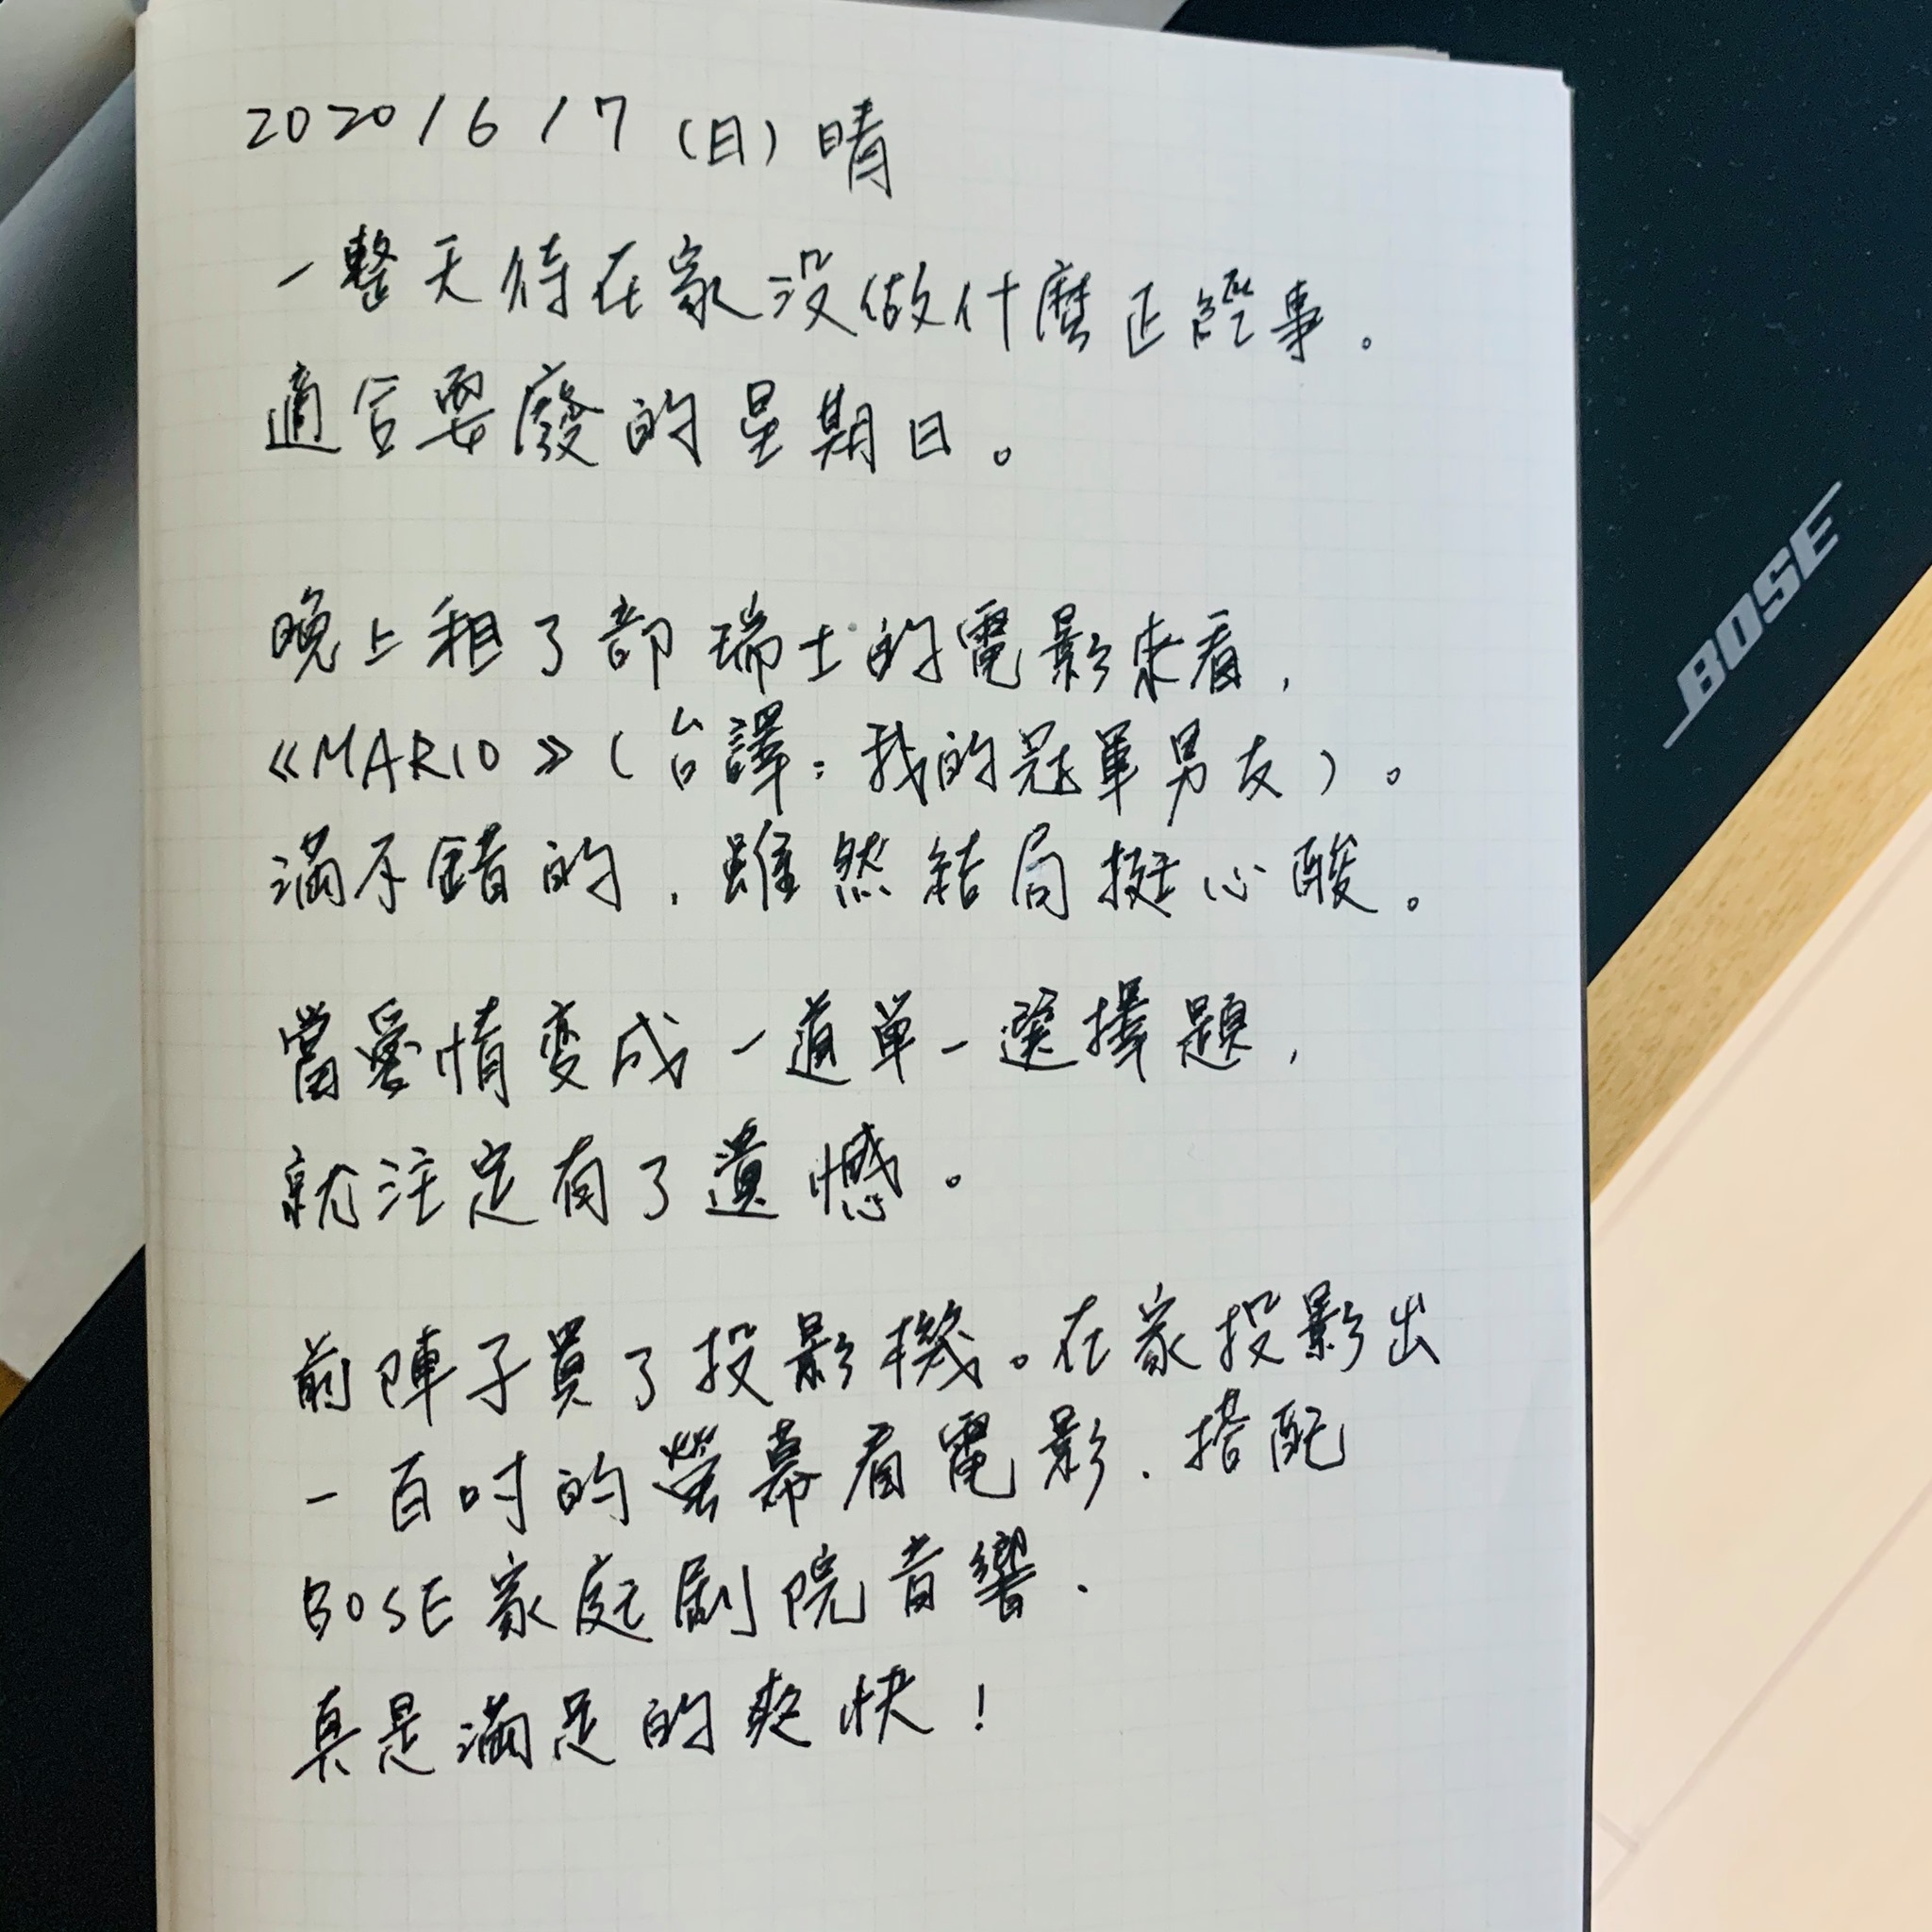 2020/6/7 (日) 晴
一整天待在家沒做什麼正經事。
適合耍廢的星期日。
晚上租了部瑞士的電影來看，
《MARIO》(台譯：我的冠軍男友)。
滿不錯的，雖然結局挺心酸。
當愛情変成一道單一選擇題，
就注定有了遺憾。
前陣子買了投影機。在家投影出
一百吋的螢幕看電影、搭配
BOSE家庭劇院音響、
真是滿足的爽快！
BOSE